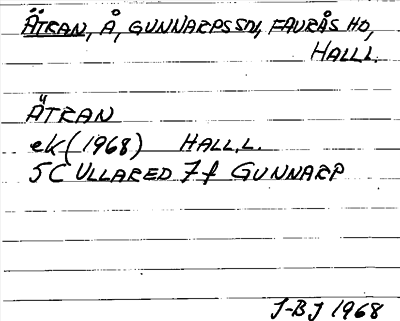 ÄTRAN, Å, GUNNARPS SN, FAURÅS HD,
HALL.
ÄTRAN
ek (1968) HALL.L.
5C ULLARED 7f GUNNARP
J-BJ 1968